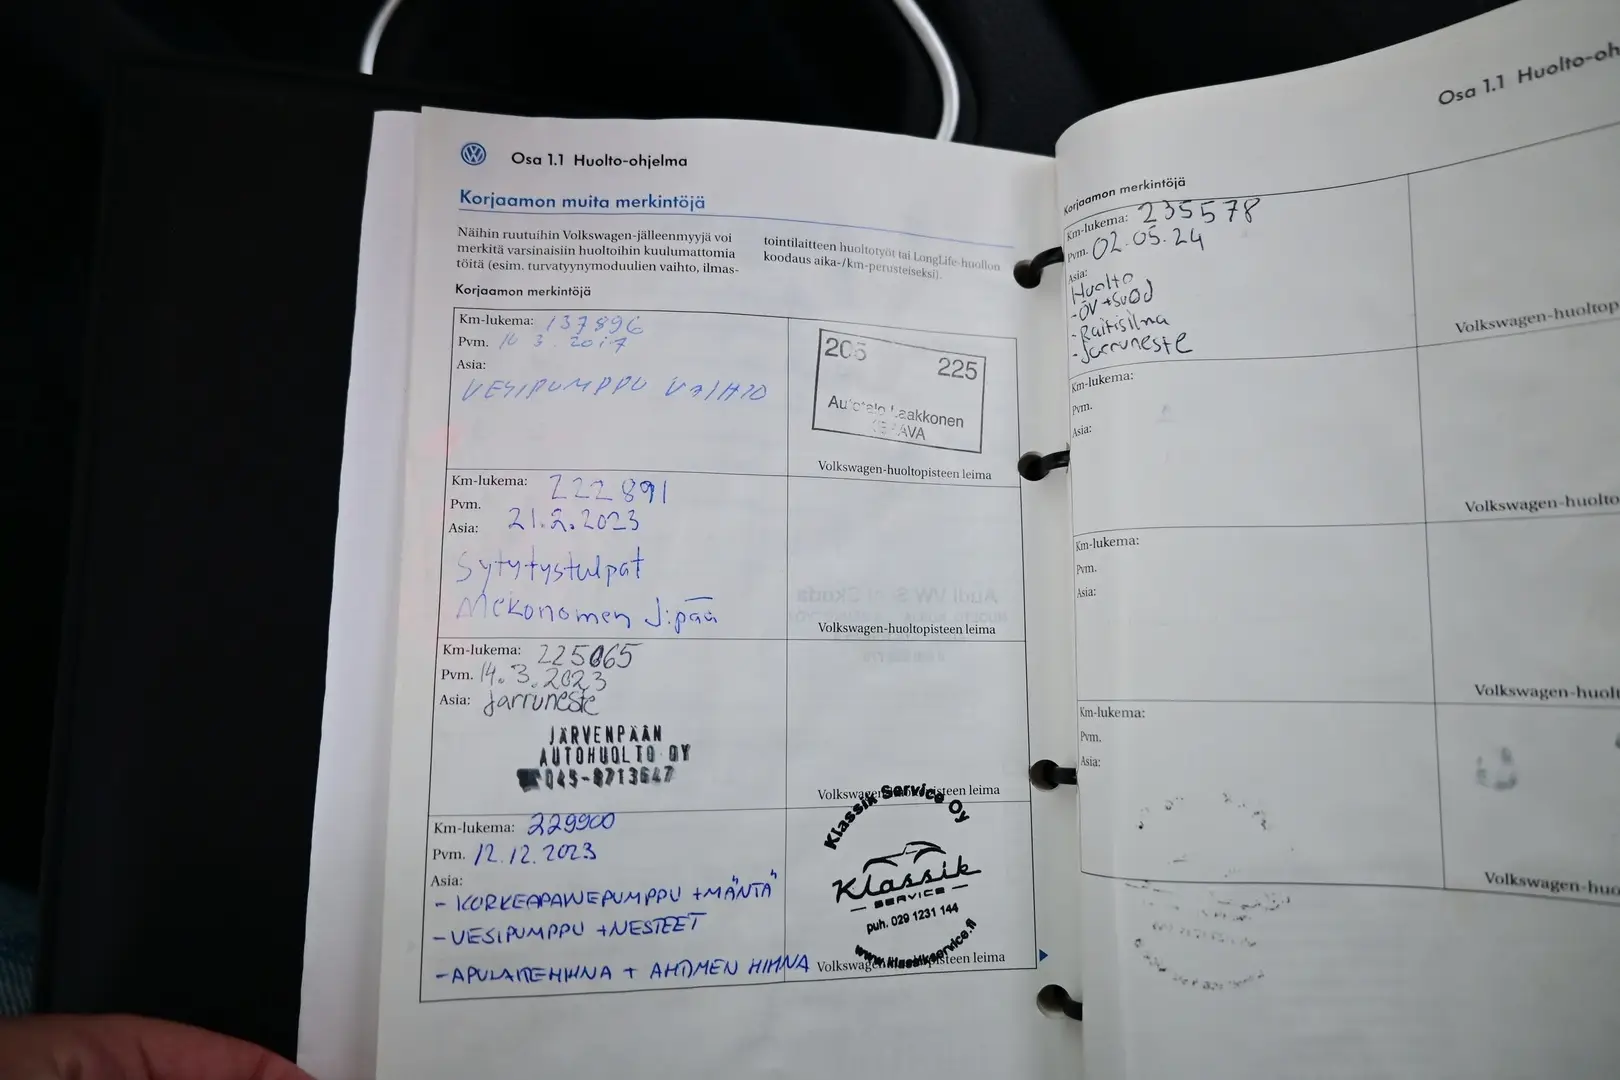 Osa 1.1 Huolto-ohjelma
Korjaamon muita merkintöjä
Näihin ruutuihin Volkswagen-jälleenmyyjä voi
merkitä varsinaisiin huoltoihin kuulumattomia
töitä (esim. turvatyynymoduulien vaihto, ilmas-
tointilaitteen huoltotyöt tai LongLife-huollon
koodaus aika-/km-perusteiseksi).
Korjaamon merkintöjä
Km-lukema: 137896
Pvm. 3. 2017
Asia:
VESIPUMPPU VAIHTO
205 225
Autotalo Laakkonen
KERAVA
Volkswagen-huoltopisteen leima
Km-lukema: 222891
Pvm.
21.2.2023
Asia:
Sytytystulpat
Mekonomen J:pää
Volkswagen-huoltopisteen leima
Km-lukema: 225065
Pvm. 14.3.2023
Asia: Jarruneste
JÄRVENPÄÄN
AUTOHUOLTO OY
045-8713647
Volkswagen-huoltopisteen leima
Km-lukema: 229900
Pvm. 12.12.2023
Asia:
- KORKEAPAINEPUMPPU + "MÄNTÄ"
- VESIPUMPPU + NESTEET
- APULAITEHIHNA + AHTIMEN HIHNA
Klassik Service Oy
Klassik
SERVICE
puh. 029 1231 144
www.klassikservice.fi
Volkswagen-huoltopisteen leima
Osa 1.1 Huolto-oh
Korjaamon merkintöjä
Km-lukema: 235578
Pvm. 02.05.24
Asia:
Huolto
- ÖV+suod
- Raitisilma
- Jarruneste
Volkswagen-huoltop
Km-lukema:
Pvm.
Asia:
Volkswagen-huolto
Km-lukema:
Pvm.
Asia:
Volkswagen-huolt
Km-lukema:
Pvm.
Asia:
Volkswagen-huo